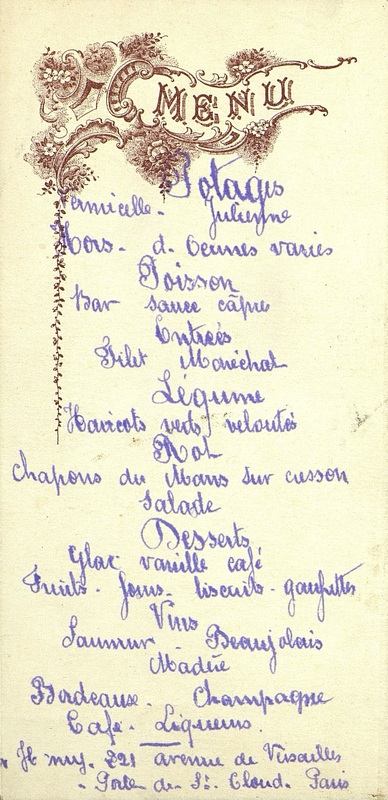 MENU
Potages
Vermicelle - Julienne
Hors - d. Oeuvres variés
Poisson
Bar sauce câpre
Entrées
Filet Maréchal
Légume
Haricots verts veloutés
Rot
Chapons du Mans sur cresson
Salade
Desserts
Glac vanille café
Fruits - foms - biscuits - gaufrettes
Vins
Saumur - Beaujolais
Madère
Bordeaux - Champagne
Café - Liqueurs.
221 avenue de Versailles
- Porte de St. Cloud. Paris